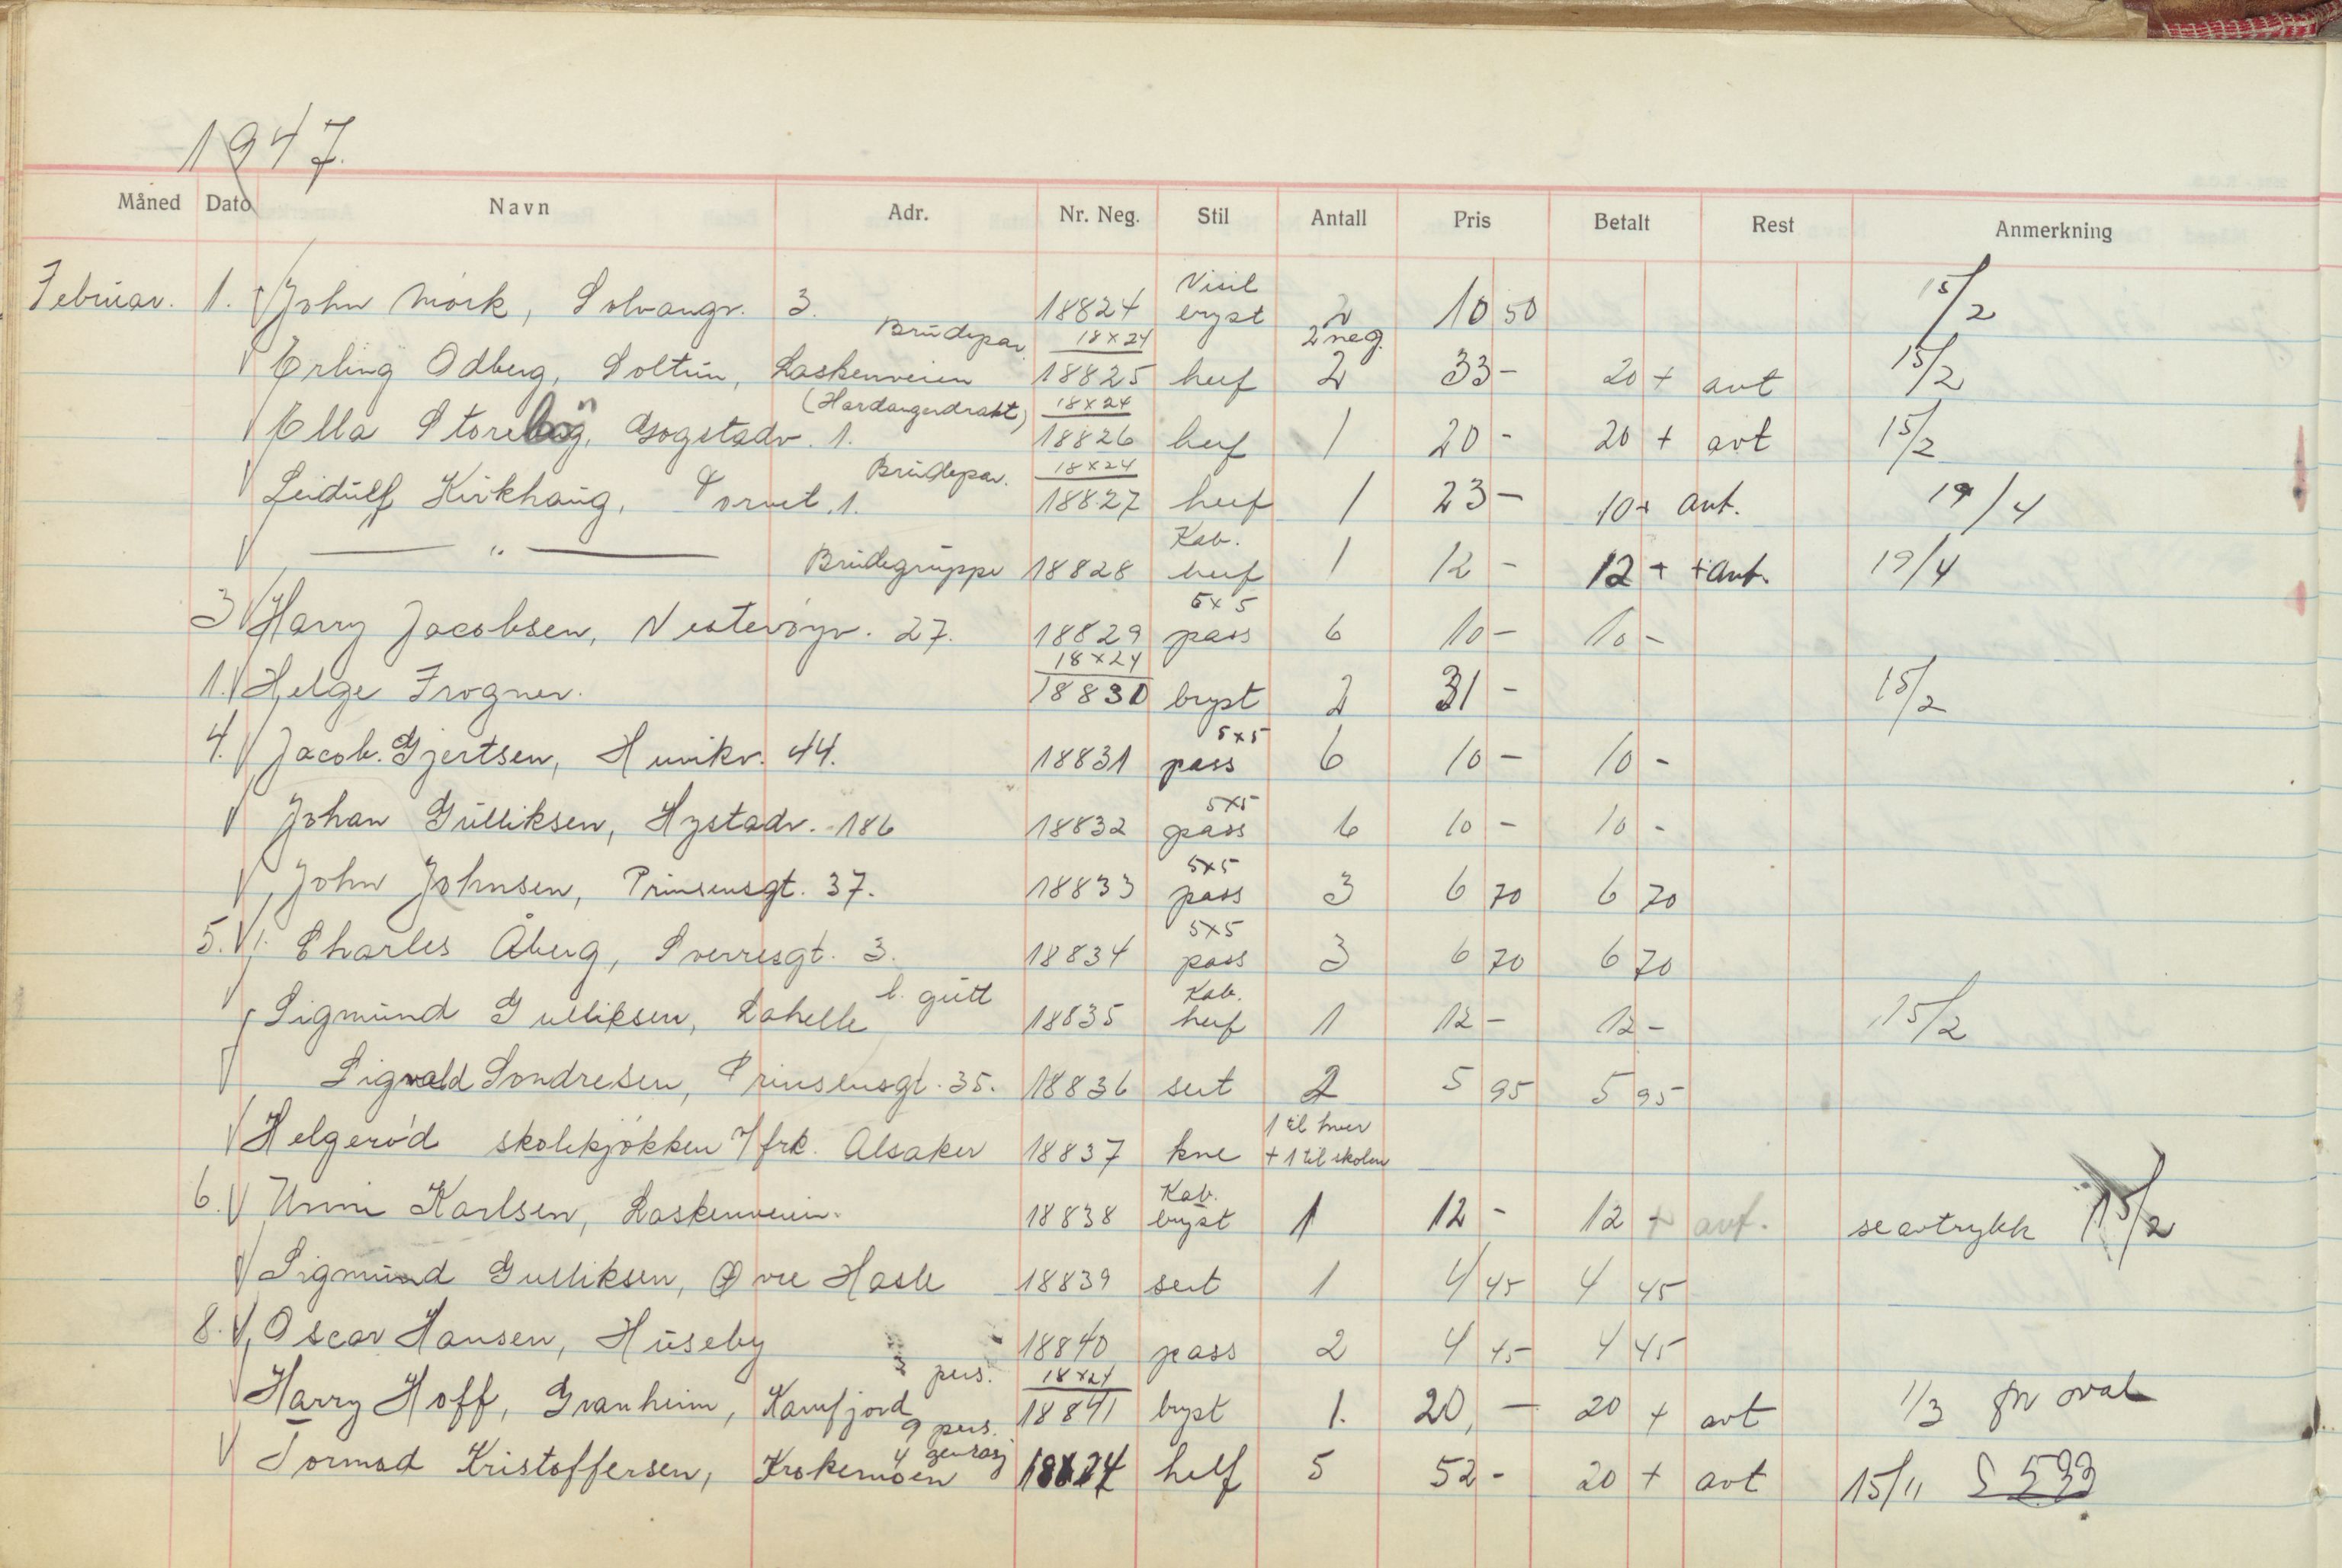 1947.
Måned Dato Navn Adr. Nr. Neg. Stil Antall Pris Betalt Rest Anmerkning
Visit
Februar. 1. John Mörk, Solvangv. 3. 18824 bryst 2 10 50 15/2
Brudepar. 18x24 2 neg.
Erling Odberg, Soltun, Laskenveien 18825 huf 2 33 - 20 + avt 15/2
(Hardangerdrakt) 18x24
Ella Gogstadv. 1. 18826 huf 1 20 - 20 + avt 15/2
Brudepar. 18x24
Leidulf Kirkhaug, Torvet 1. 18827 huf 1 23 - 10 + avt. 19/4
Kab.
— " — Brudegruppe 18828 huf 1 12 - 12 + + avt. 19/4
5x5
3 Harry Jacobsen, Vesteröyv. 27. 18829 pass 6 10 - 10 -
18x24
1. Helge Frogner. 18830 bryst 2 31 - 15/2
5x5
4. Jacob. Gjertsen, Hunikv. 44. 18831 pass 6 10 - 10 -
5x5
Johan Gulliksen, Hystadv. 186 18832 pass 6 10 - 10 -
5x5
John Johnsen, Prinsensgt. 37. 18833 pass 3 6 70 6 70
5x5
5. Charles Åberg, Sverresgt. 3. 18834 pass 3 6 70 6 70
l. gutt Kab.
Sigmund Gulliksen, Lahelle 18835 huf 1 12 - 12 - 15/2
Sigvald Sondresen, Prinsensgt. 35. 18836 seut 2 5 95 5 95
1 til hver
Helgeröd skolekjökken v/ frk. Alsaker 18837 kne + 1 til skolen
Kab.
6. Unni Karlsen, Laskenveien. 18838 bryst 1 12 - 12 + avt. se avtrykk 15/2
Sigmund Gulliksen, Øvre Hasle 18839 seut 1 4 45 4 45
8. Oscar Hansen, Huseby 18840 pass 2 4 45 4 45
3 pers. 18x24
Harry Hoff, Granheim, Kamfjord 18841 bryst 1. 20, - 20 + avt 1/3 oval
9 pers.
4
Tormod Kristoffersen, Krokemoen helf 5 52 - 20 + avt 15/11 S 533